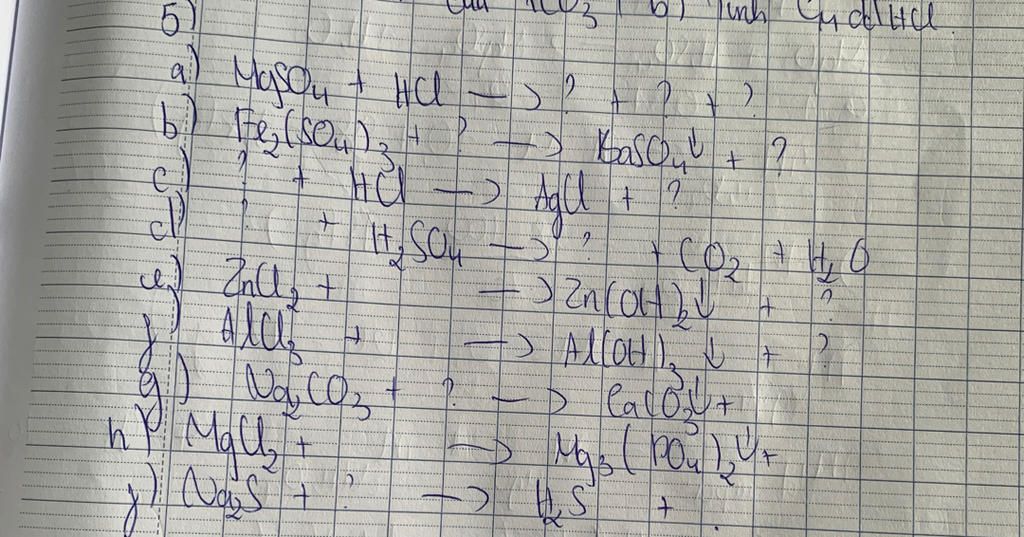 5) CO3 b) Tính CM dd HCl.
a) MgSO4 + HCl → ? + ? + ?
b) Fe2(SO4)3 + ? → BaSO4↓ + ?
c) ? + HCl → AgCl + ?
d) ? + H2SO4 → ? + CO2 + H2O
e) ZnCl2 + → Zn(OH)2↓ + ?
f) AlCl3 + → Al(OH)3 ↓ + ?
g) Na2CO3 + ? → CaCO3↓ +
h) MgCl2 + → Mg3(PO4)2↓ +
j) Na2S + ? → H2S +